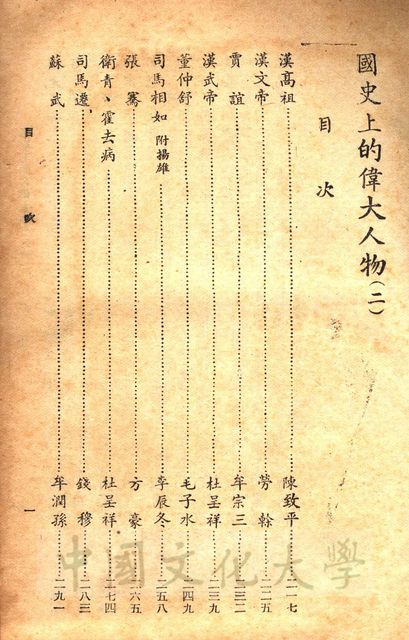 國史上的偉大人物(二)
目次
漢高祖……陳致平……二一七
漢文帝……勞榦……二二五
賈誼……牟宗三……二三二
漢武帝……杜呈祥……二三九
董仲舒……毛子水……二四九
司馬相如 附揚雄……李辰冬……二五八
張騫……方豪……二六五
衛青、霍去病……杜呈祥……二七四
司馬遷……錢穆……二八三
蘇武……牟潤孫……二九一
目次 一
中國文化大學